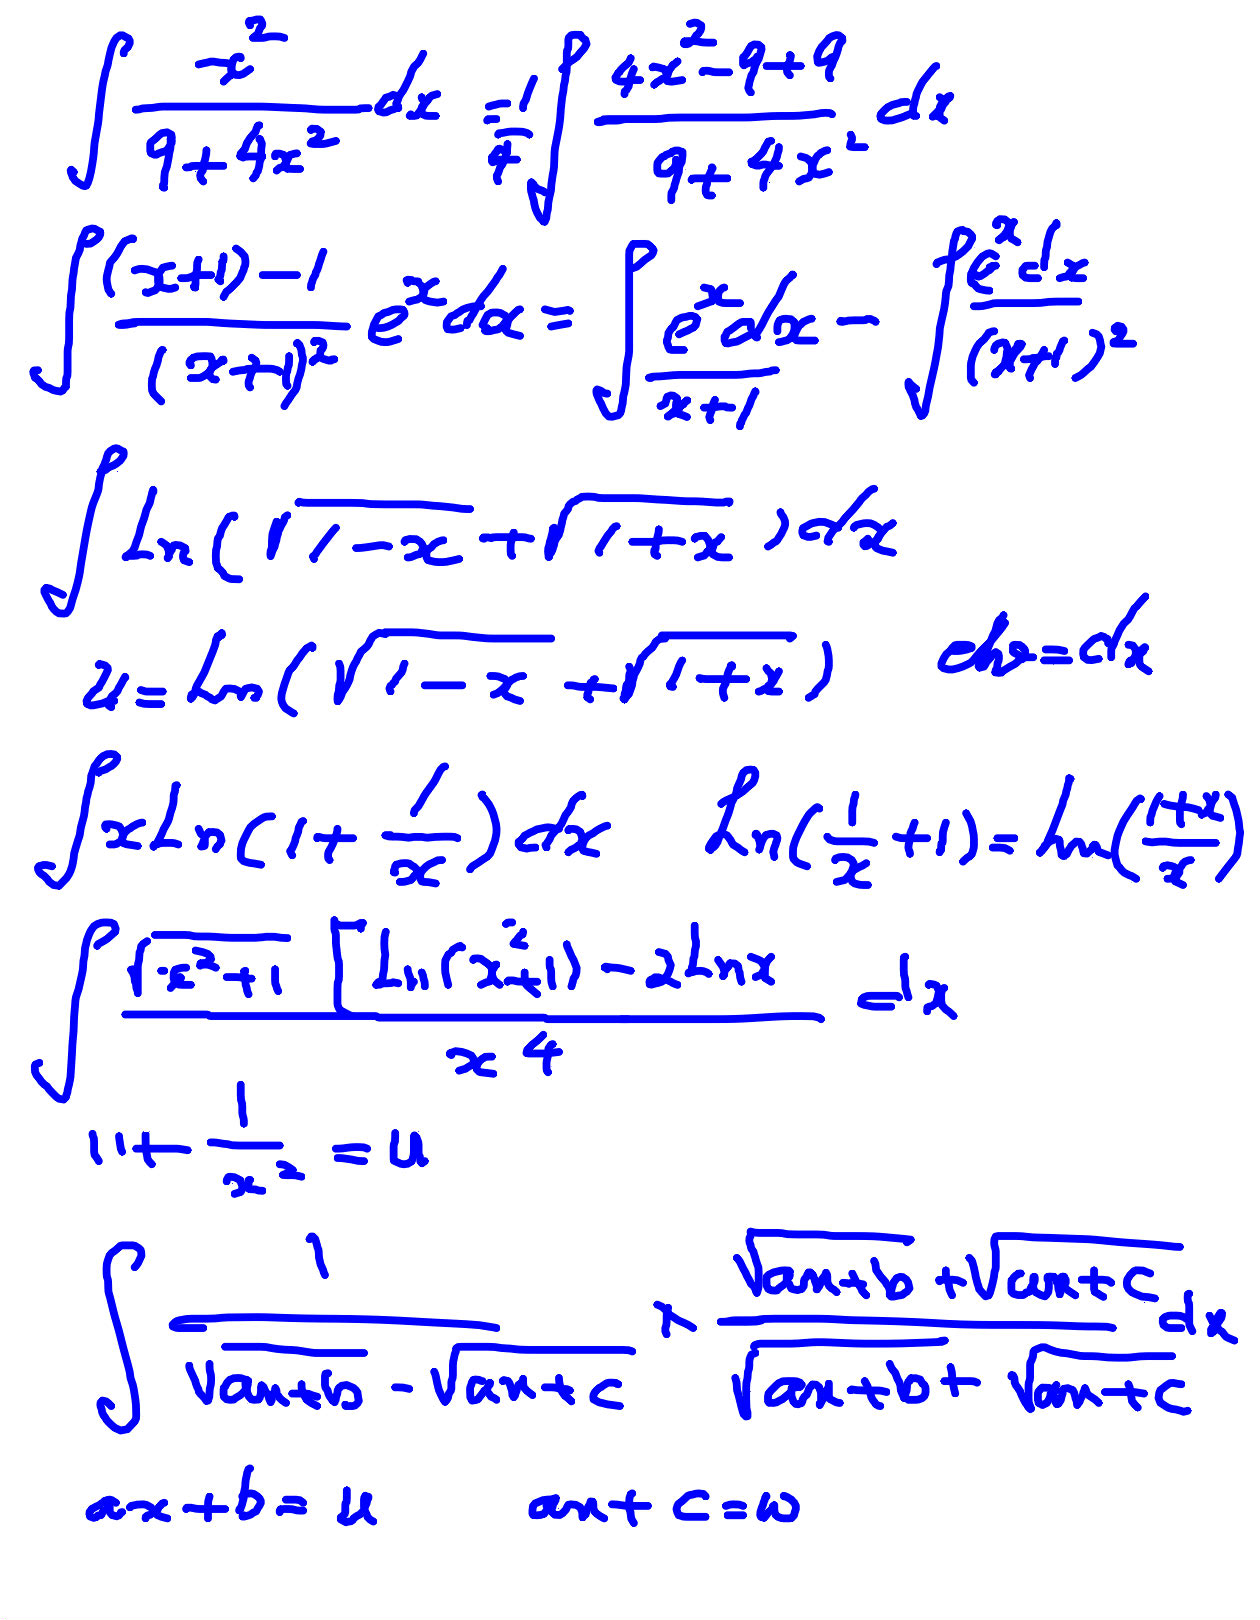 ∫ x²/(9+4x²) dx = 1/4 ∫ (4x²-9+9)/(9+4x²) dx
∫ ((x+1)-1)/(x+1)² eˣ dx = ∫ eˣdx/(x+1) - ∫ eˣdx/(x+1)²
∫ Ln(√(1-x) + √(1+x)) dx
u = Ln(√(1-x) + √(1+x)) dv = dx
∫ x Ln(1+1/x) dx Ln(1/x+1) = Ln((1+x)/x)
∫ √(x²+1) [Ln(x²+1) - 2Lnx / x⁴ dx
1+ 1/x² = u
∫ 1/(√(ax+b) - √(ax+c)) × (√(ax+b) + √(ax+c))/(√(ax+b) + √(ax+c)) dx
ax+b = u ax+c = w